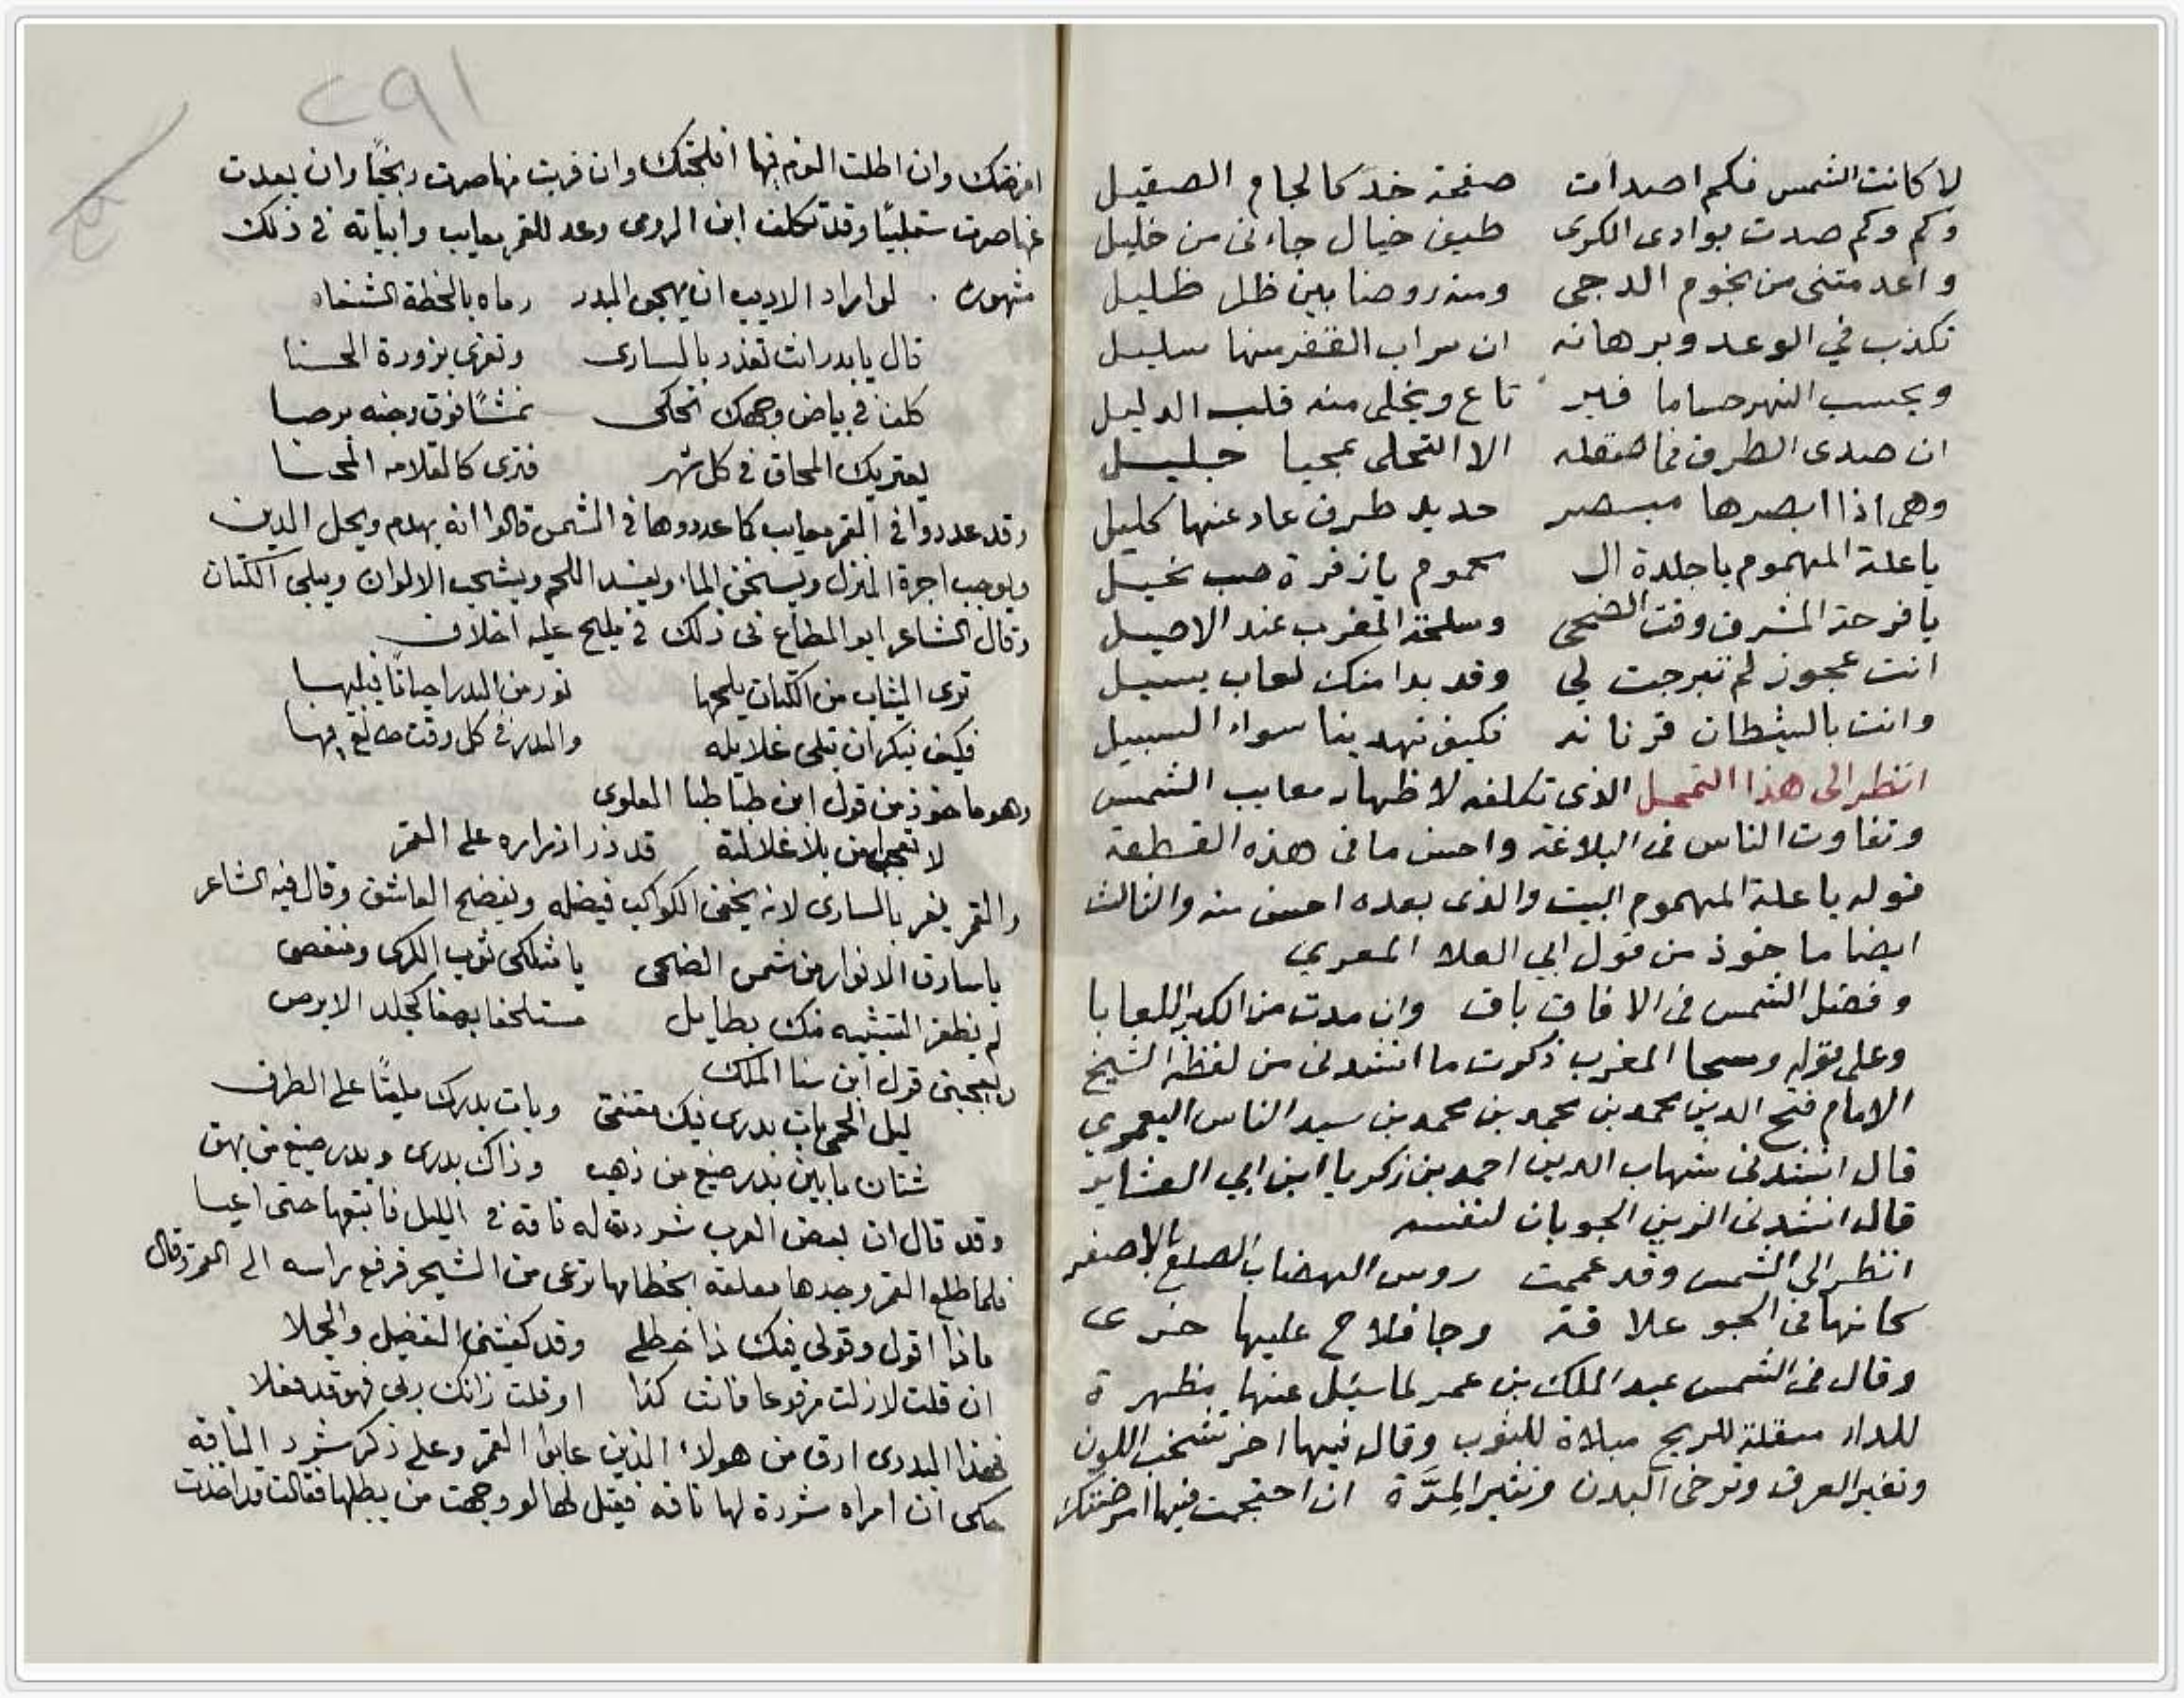 لا كانت الشمس فكم اصدأت صفحة خد كالجام الصقيل
وكم وكم صدت بوادى الكرى طيف خيال جاءنى من خليل
واعدمتنى من نجوم الدجى ومنه روضا بين ظل ظليل
تكذب في الوعد وبرهانه ان سراب القفر منها سليل
ويحسب النهر حساما فير تاع ويخلى منه قلب الدليل
ان صدى الطرف فما صقله الا التحلى بمحيا جليل
وهى اذا ابصرها مبصر حديد طرف عاد عنها كليل
يا علة المهموم يا جلدة ال محموم يا زفرة صب نحيل
يا قرحة المشرق وقت الضحى وسلحة المغرب عند الاصيل
انت عجوز لم تبرجت لي وقد بدا منك لعاب يسيل
وانت بالشيطان قرنانه فكيف تهدينا سواء السبيل
انظر الى هذا التمحل الذى تكلفه لاظهار معايب الشمس
وتفاوت الناس فى البلاغة واحسن ما فى هذه القطعة
قوله يا علة المهموم البيت والذى بعده احسن منه والثالث
ايضا ماخوذ من قول ابي العلا المعري
وفضل الشمس فى الافاق باق وان مدت من الكبر اللعابا
وعلى قوله وسحا المغرب ذكرت ما انشدنى من لفظه الشيخ
الامام فتح الدين محمد بن محمد بن محمد بن سيد الناس اليعمري
قال انشدنى شهاب الدين احمد بن زكريا ابن ابي العشاير
قال انشدنى الزين الجوبان لنفسه
انظر الى الشمس وقد عممت روس الهضاب الصلع بالاصفر
كانها فى الجو علاقة وجا فلاح عليها خرى
وقال فى الشمس عبد الملك بن عمر لما سئل عنها مظهرة
للداء مثقلة للريح مبلاة للثوب وقال فيها اخر تشحب اللون
وتغير العرق وترخى البدن وتثير المِرَّة ان احتجمت فيها امرضتك
٢٩١
امرضتك وان اطلت النوم فيها افلجتك وان قربت منها صرت زنجيًا وان بعدت
عنها صرت سقلبيًا وقد تكلف ابن الرومى وعد للقمر معايب وابياته فى ذلك
مشهورة . لو اراد الاديب ان يهجو البدر رماه بالخطة الشنعاء
قال يا بدر انت تغدر بالسارى وتغرى بزورة الحسنا
كلف فى بياض وجهك يحكى نمشًا فوق وجنه برصا
يعتريك المحاق فى كل شهر فترى كالقلامه الحجنا
وقد عددوا فى القمر معايب كما عددوها فى الشمس قالوا انه يهدم ويحل الدين
ويوجب اجرة المنزل ويسخن الماء ويفسد اللحم ويشحب الالوان ويبلى الكتان
وقال الشاعر ابو المطاع فى ذلك فى مليح عليه اخلاق
ترى الثياب من الكتان يلمحها نور من البدر احيانًا فيبليها
فكيف تنكر ان تبلى غلايله والبدر فى كل وقت طالع فيها
وهو ماخوذ من قول ابن طباطبا العلوى
لا تعجبوا من بلا غلالته قد زر ازراره على القمر
والقمر يغر بالسارى لانه يخفى الكواكب فيضله ويفضح العاشق وقال فيه الشاعر
يا سارق الانوار من شمس الضحى يا مثكلى ثوب الكرى ومنغصى
لم يظفر التشبيه منك بطايل متسلخا بهقا كجلد الابرص
ويعجبنى قول ابن سنا الملك
ليل الحمى بات بدرى فيك معتنقى وبات بدرك ملقيًا على الطرق
شتان ما بين بدر صيغ من ذهب وذاك بدرى وبدر صيغ من بهق
وقد قال ان بعض العرب شردت له ناقة فى الليل فاتبعها حتى اعيا
فلما طلع القمر وجدها معلقة بخطامها ترعى من الشجر فرفع راسه الى القمر وقال
ماذا اقول وقولى فيك ذا خطل وقد كفيتنى التفصيل والجملا
ان قلت لا زلت مرفوعا فانت كذا او قلت زانك ربى فهو قد فعلا
فهذا البدوى ارق من هولاء الذين عابوا القمر وعلى ذكر شرد الناقة
حكى ان امراه شردة لها ناقه فقيل لها لو وجهت من يطلبها فقالت قد اخذت